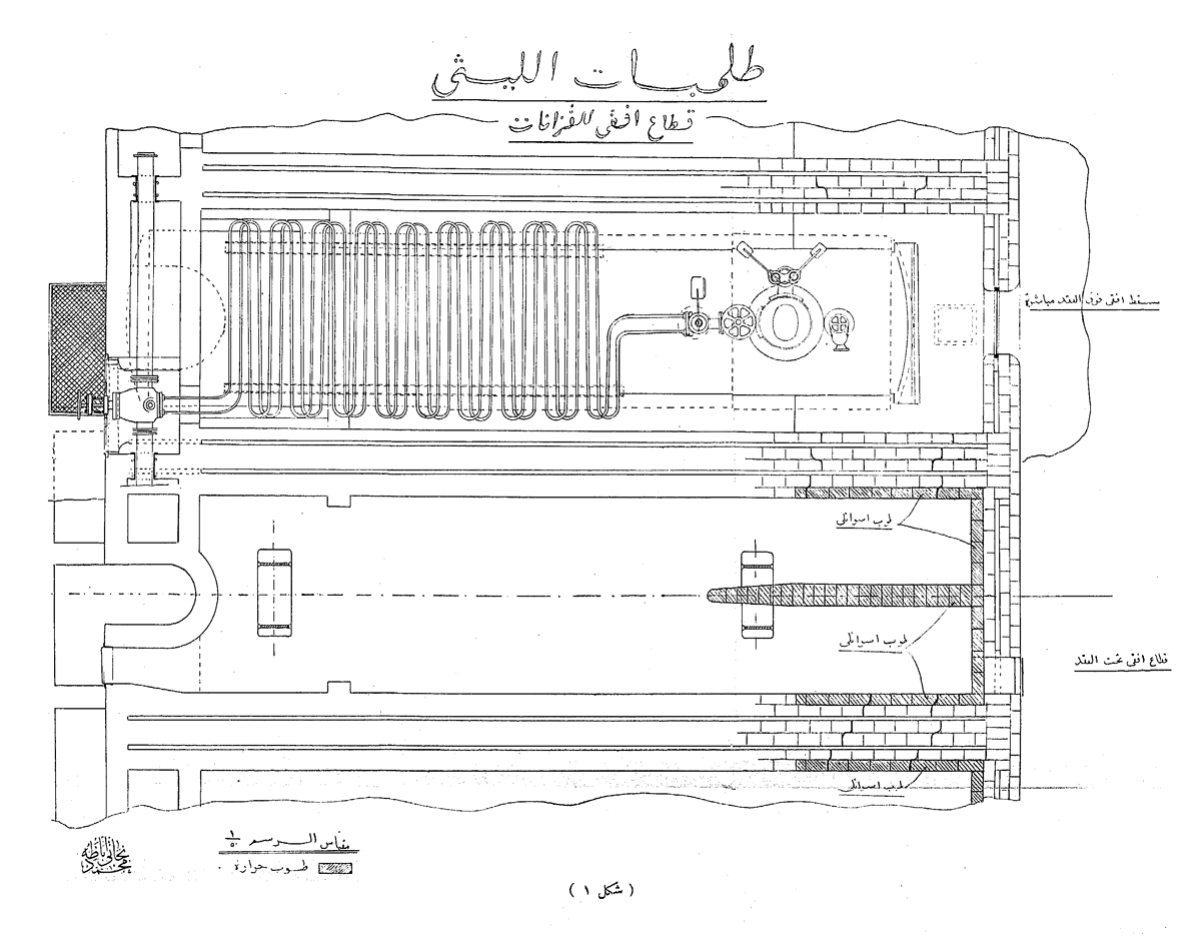 طلمبات الليثى
قطاع افقى للقزانات
مسقط افقى فوق العقد مباشرة
طوب اسوانلى
طوب اسوانلى
قطاع افقى تحت العقد
طوب اسوانلى
مقاس الرسم ١/٥٠
طوب حرارة
محمد نجاتى أباظه
( شكل ١ )